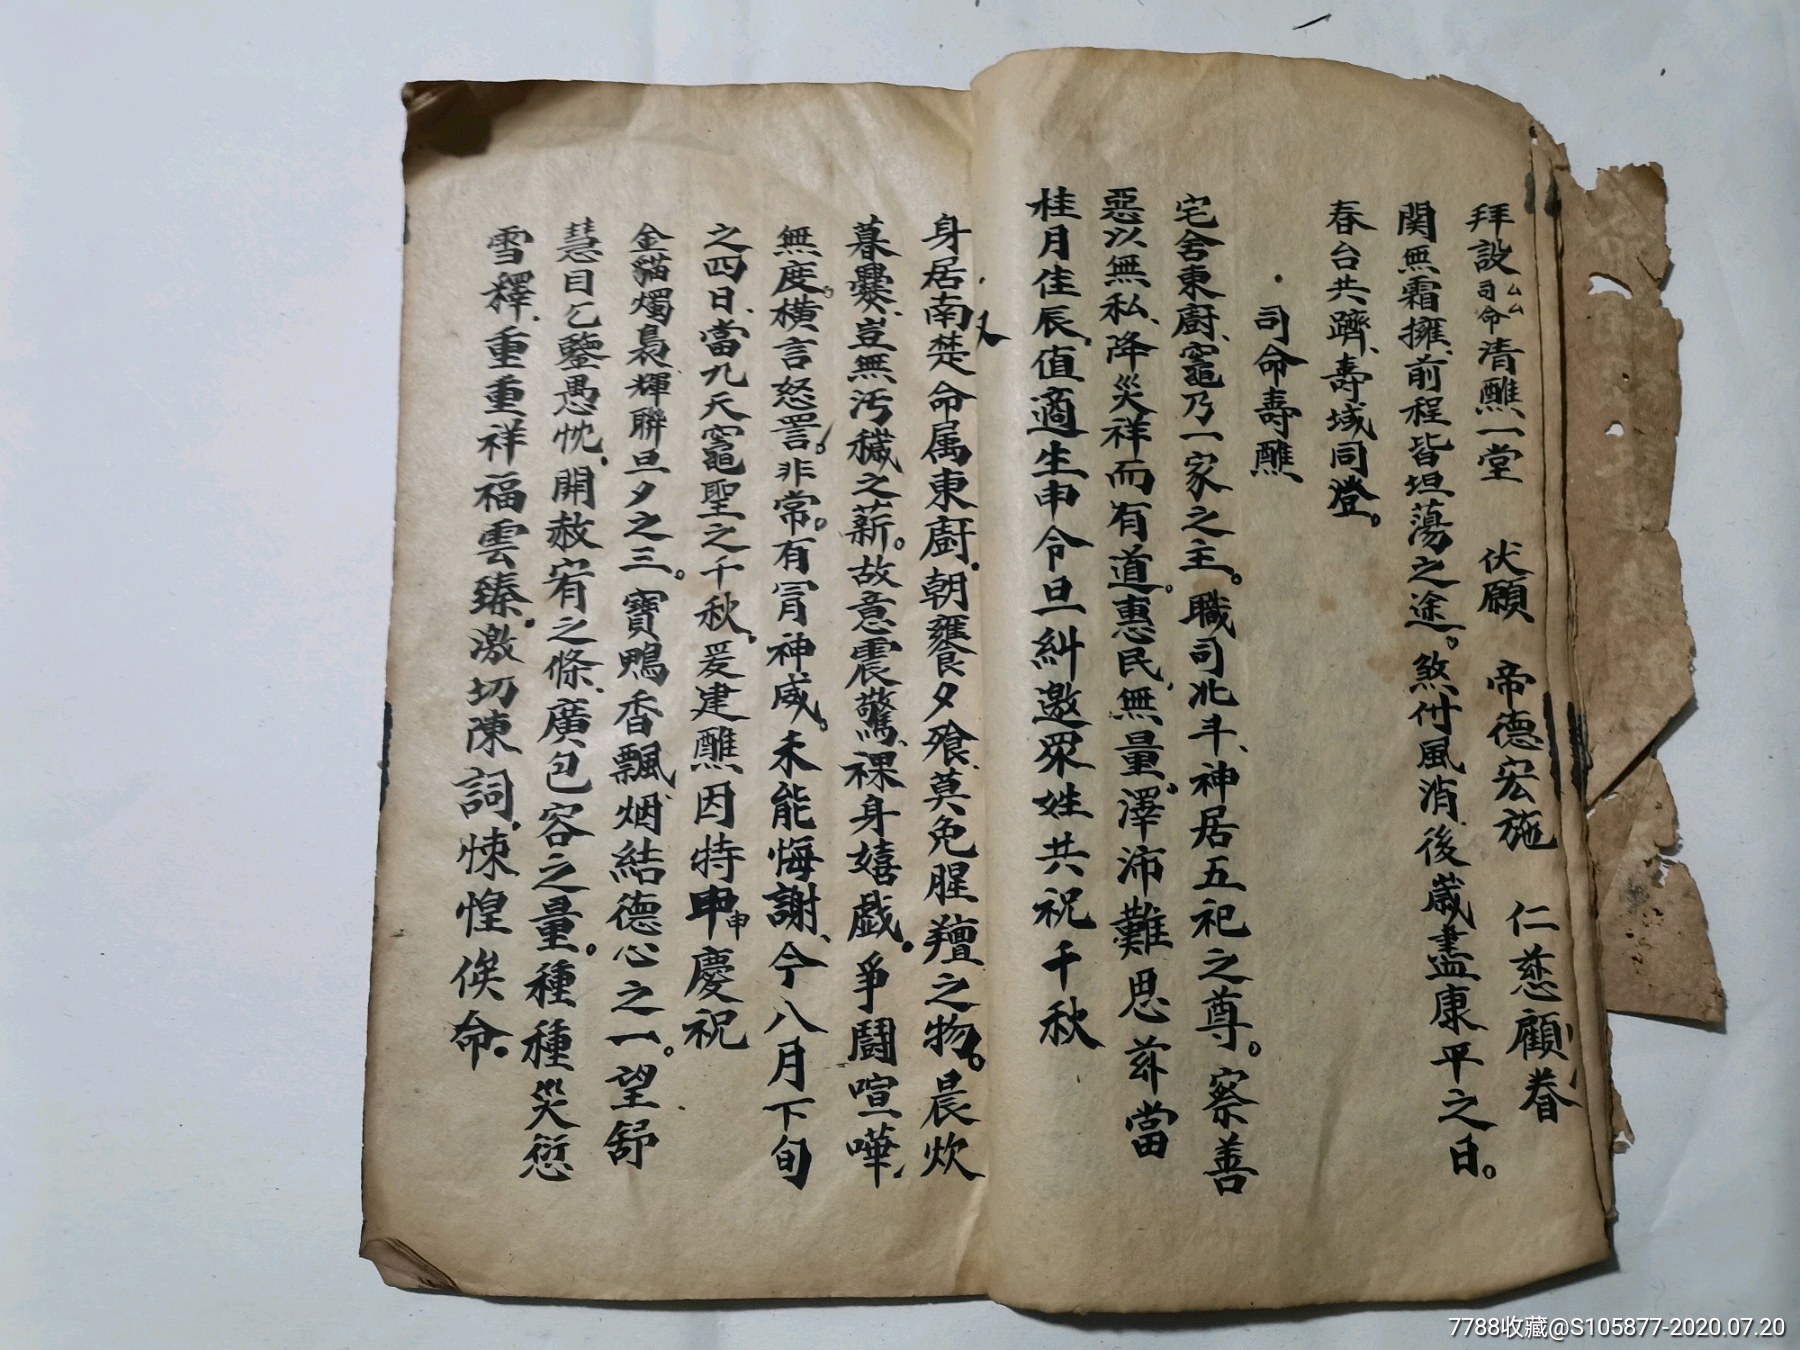 拜設司命厶厶清醮一堂 伏願 帝德宏施 仁慈顧眷
関無霜擁、前程皆坦蕩之途。煞付風消、後歲盡康平之日。
春台共躋、壽域同登。
司命壽醮
宅舍東廚、竈乃一家之主。職司北斗、神居五祀之尊。察善
惡以無私、降災祥而有道。惠民無量、澤沛難思兹當
桂月佳辰、值適生申令旦糾邀眾姓共祝千秋
又
身居南楚命属東廚。朝饔夕飱、莫免腥羶之物。晨炊
暮爨、豈無污穢之薪。故意震驚、裸身嬉戯。爭鬪喧嘩、
無度。橫言怒詈。非常。有冐神威、未能悔謝、今八月下旬
之四日、當九天竈聖之千秋、爰建醮因特申申慶祝
金貓燭裊輝聯旦夕之三。寶鴨香飄烟結德心之一。望舒
慧目乞鑒愚忱、開赦宥之條、廣包容之量。種種災愆
雪釋、重重祥福雲臻。激切陳詞、悚惶俟命。
7788收藏@S105877-2020.07.20